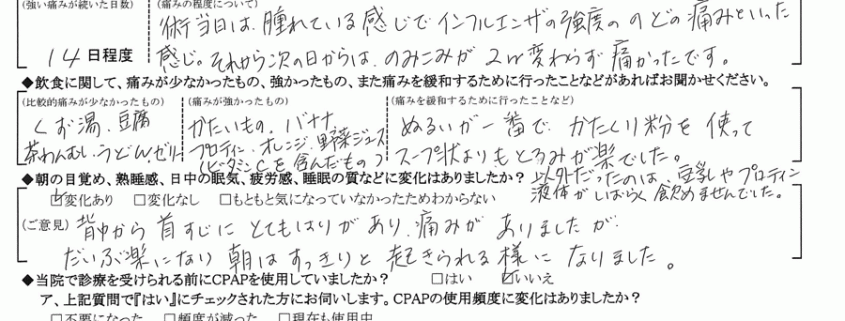 (強い痛みが続いた日数)
(痛みの程度について)
術当日は、腫れている感じでインフルエンザの強度ののどの痛みといった
14日程度
感じ。それから次の日からは、のみこみが2w変わらず痛かったです。
◆飲食に関して、痛みが少なかったもの、強かったもの、また痛みを緩和するために行ったことなどがあればお聞かせください。
(比較的痛みが少なかったもの)
(痛みが強かったもの)
(痛みを緩和するために行ったことなど)
くず湯、豆腐
茶わんむし、うどん、ゼリー
かたいもの、バナナ
プロテイン、オレンジ、野菜ジュース
(ビタミンCを含んだもの)
ぬるいが一番で、かたくり粉を使って
スープ状よりもとろみが楽でした。
以外だったのは、豆乳やプロテイン
液体がしばらく飲めませんでした。
◆朝の目覚め、熟睡感、日中の眠気、疲労感、睡眠の質などに変化はありましたか?
☑変化あり □変化なし □もともと気になっていなかったためわからない
(ご意見)
背中から首すじにとてもはりがあり、痛みがありましたが
だいぶ楽になり朝はすっきりと起きられる様になりました。
◆当院で診療を受けられる前にCPAPを使用していましたか? □はい ☑いいえ
ア、上記質問で『はい』にチェックされた方にお伺いします。CPAPの使用頻度に変化はありましたか?
□不要になった □頻度が減った □現在も使用中